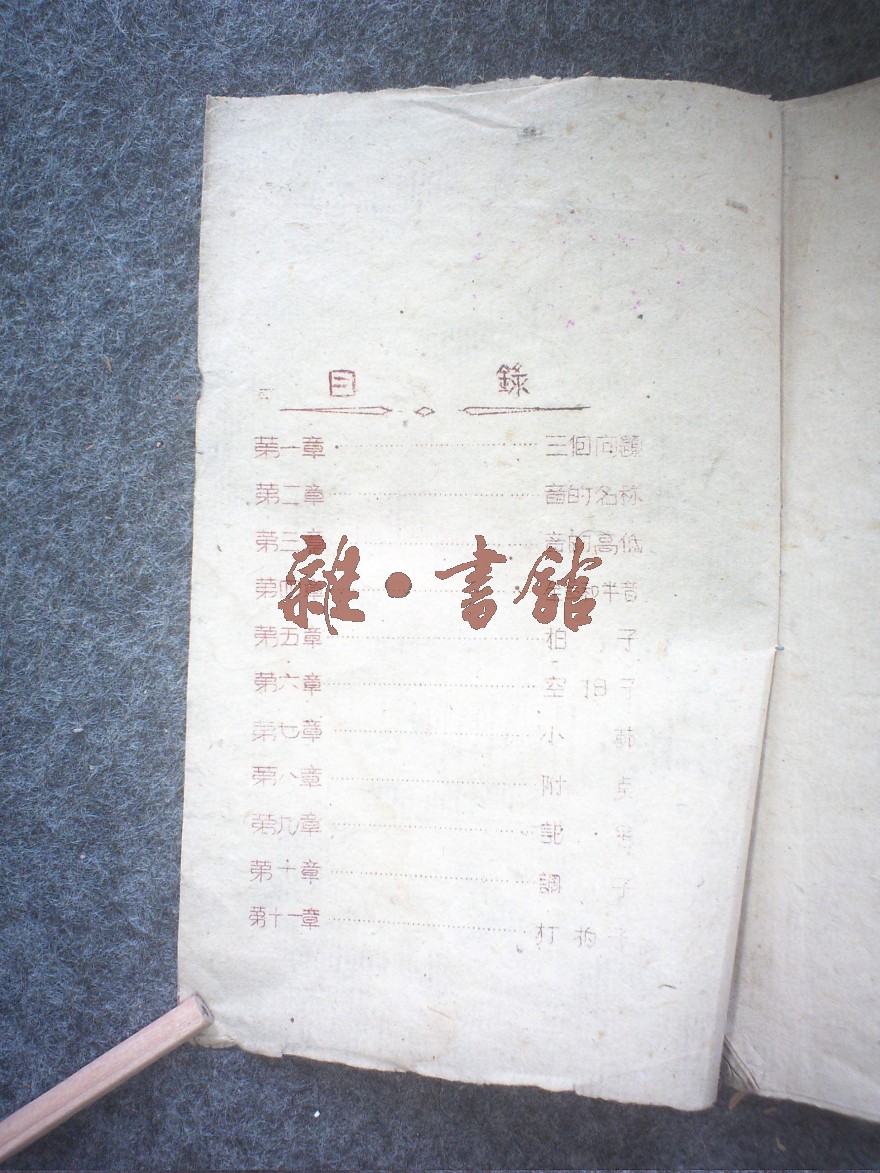 目錄
第一章 三個问題
第二章 音的名称
第三章 音的高低
第四章 和半音
第五章 拍子
第六章 空拍子
第七章 小節
第八章 附
第九章 記号
第十章 調子
第十一章 打拍子
雜·書館